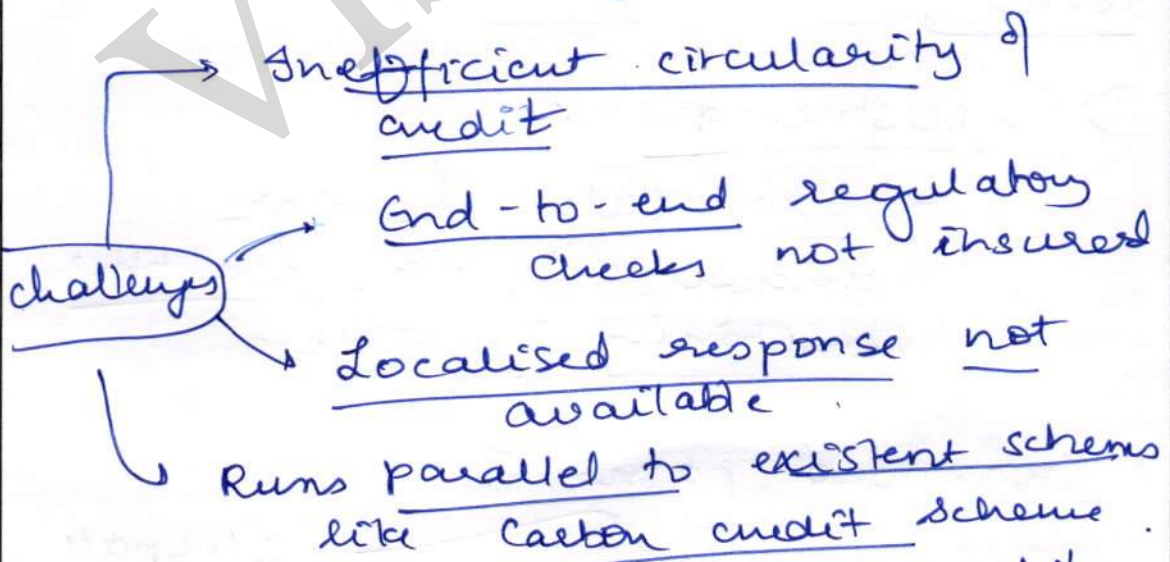 Inefficient circularity of
credit
End-to-end regulatory
checks not insured
challenges
Localised response not
available.
Runs parallel to existent schems
like Carbon credit scheme.